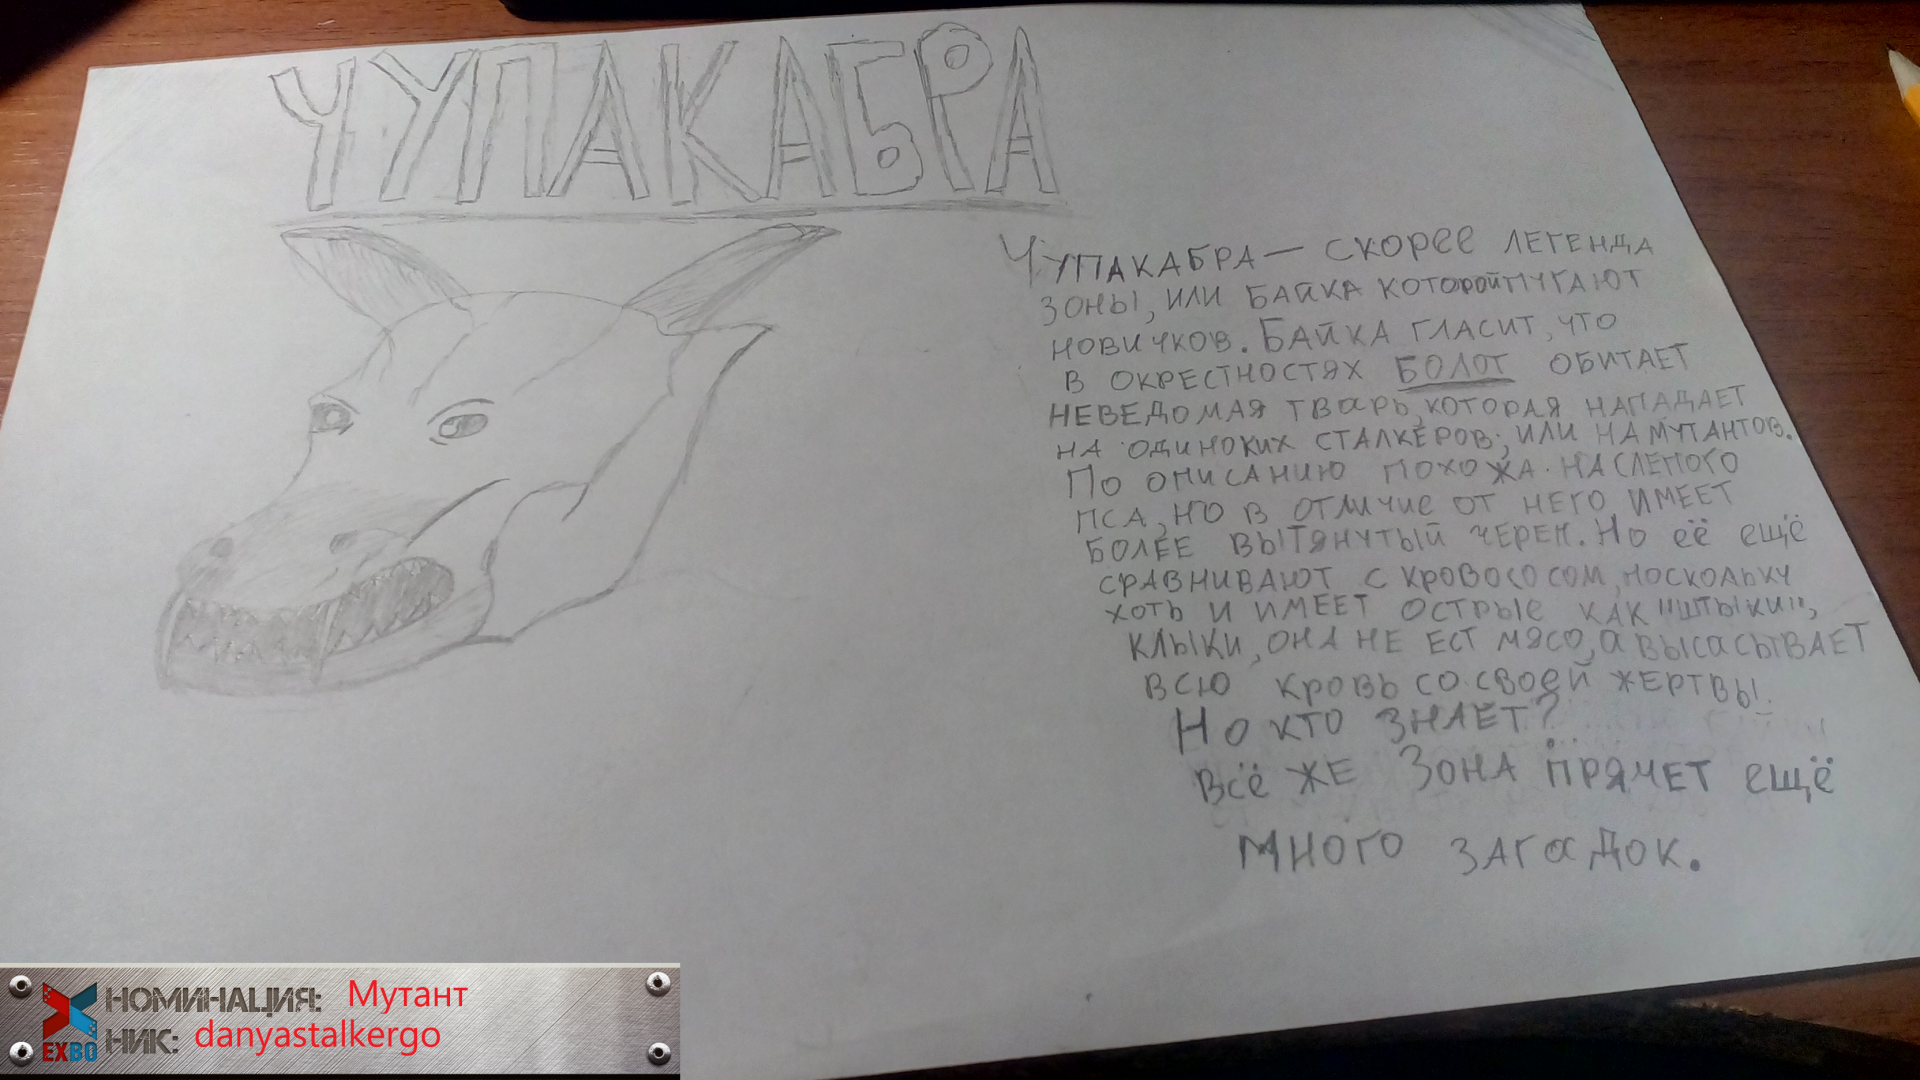 ЧУПАКАБРА
ЧУПАКАБРА — скорее легенда
зоны, или байка которой пугают
новичков. Байка гласит, что
в окрестностях болот обитает
неведомая тварь, которая нападает
на одиноких сталкеров, или на мутантов.
По описанию похожа на слепого
пса, но в отличие от него имеет
более вытянутый череп. Но её ещё
сравнивают с кровососом, поскольку
хоть и имеет острые как "штыки",
клыки, она не ест мясо, а высасывает
всю кровь со своей жертвы.
Но кто знает?
Всё же Зона прячет ещё
много загадок.
НОМИНАЦИЯ: Мутант
НИК: danyastalkergo
EXBO